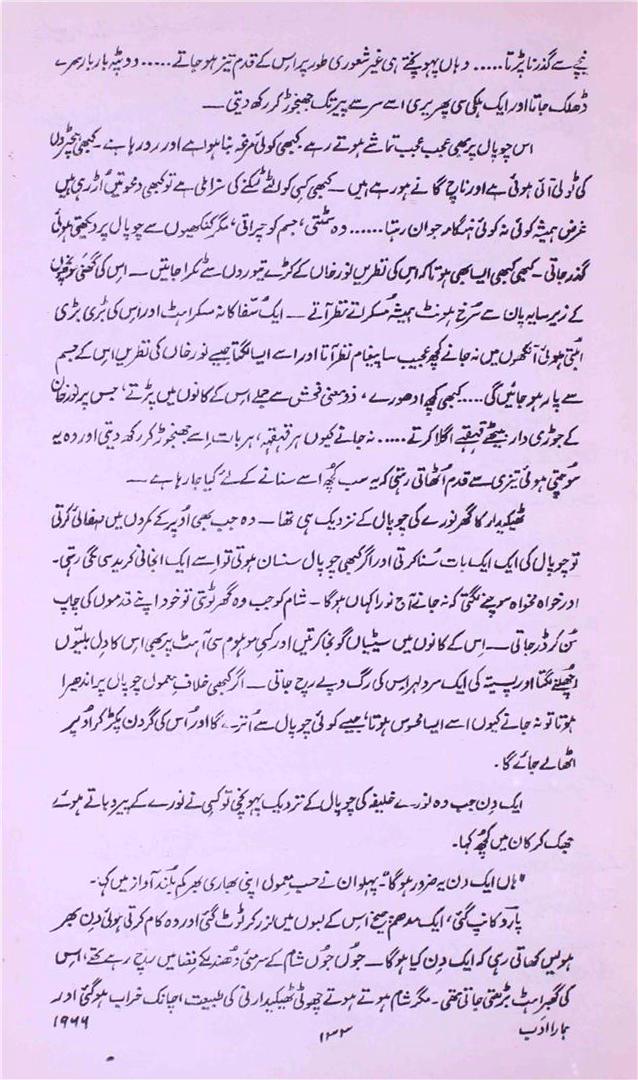 نیچے سے گذرنا پڑتا ..... وہاں پہونچتے ہی غیر شعوری طور پر اس کے قدم تیز ہو جاتے ..... دوپٹہ بار بار سر سے
ڈھلک جاتا اور ایک ہلکی سی پھریری اسے سر سے پیر تک جھنجوڑ کر رکھ دیتی —
اس چوپال پر بھی عجب عجب تماشے ہوتے رہے کبھی کوئی مرغہ بنا ہوا ہے اور رو رہا ہے ۔ کبھی ہیجڑوں
کی ٹولی آئی ہوئی ہے اور ناچ گانے ہو رہے ہیں ۔ کبھی کسی کو الٹے لٹکنے کی سزا ملی ہے تو کبھی دعوتیں اُڑ رہی ہیں
غرض ہمیشہ کوئی نہ کوئی ہنگامہ جوان رہتا ...... وہ سمٹتی، جسم کو چراتی، مگر کنکھیوں سے چوپال پر دیکھتی ہوئی
گذر جاتی ۔ کبھی کبھی ایسا بھی ہوتا کہ اس کی نظریں نور خاں کے کڑے تیوروں سے ٹکرا جاتیں — اس کی گھنی مونچھوں
کے زیر سایہ پان سے سُرخ ہونٹ ہمیشہ مُسکراتے نظر آتے — ایک سفاکانہ مسکراہٹ اور اس کی بڑی بڑی
اُبلتی ہوئی آنکھوں میں نہ جانے کچھ عجیب سا پیغام نظر آتا اور اسے ایسا لگتا جیسے نور خاں کی نظریں اس کے جسم
سے پار ہو جائیں گی .... کبھی کچھ ادھورے، ذو معنی فحش سے جملے اس کے کانوں میں پڑتے، جس پر نور خان
کے جوڑی دار بیٹھے قہقہے اگلا کرتے ..... نہ جانے کیوں ہر قہقہہ، ہر بات اِسے جھنجوڑ کر رکھ دیتی اور وہ یہ
سوچتی ہوئی تیزی سے قدم اُٹھاتی رہتی کہ یہ سب کچھ اسے سنانے کے لئے کیا جا رہا ہے —
ٹھیکیدار کا گھر نورے کی چوپال کے نزدیک ہی تھا — وہ جب بھی اُوپر کے کمروں میں صفائی کرتی
تو چوپال کی ایک ایک بات سُنا کرتی اور اگر کبھی چوپال سنسان ہوتی تو اسے ایک انجانی کرید سی لگی رہتی ۔
اور خواہ مخواہ سوچنے لگتی کہ نہ جانے آج نورا کہاں ہوگا — شام کو جب وہ گھر لوٹتی تو خود اپنے قدموں کی چاپ
سُن کر ڈر جاتی — اس کے کانوں میں سیٹیاں گونجا کرتیں اور کسی موہوم سی آہٹ پر بھی اس کا دِل بلیّوں
اُچھلنے لگتا اور پسینہ کی ایک سرد لہر اس کی رگ و پے رچ جاتی — اگر کبھی خلافِ معمول چوپال پر اندھیرا
ہوتا تو نہ جانے کیوں اسے ایسا محسوس ہوتا، جیسے کوئی چوپال سے اُترے گا اور اُس کی گردن پکڑ کر اُوپر
اٹھا لے جائے گا ۔
ایک دن جب وہ نورے خلیفہ کی چوپال کے نزدیک پہونچی تو کسی نے نورے کے پیر دباتے ہوئے
جھک کر کان میں کچھ کہا ۔
"ہاں ایک دن یہ ضرور ہوگا" ۔ پہلوان نے حسب معمول اپنی بھاری بھرکم بلند آواز میں کہا ۔
پارو کانپ گئی، ایک مدھم چیخ اس کے لبوں میں لرز کر ٹوٹ گئی اور وہ کام کرتی ہوئی دن بھر
ہولیں کھاتی رہی کہ ایک دن کیا ہوگا — جوں جوں شام کے سرمئی دھندلکے فضا میں رچ رہے تھے، اس
کی گھبراہٹ بڑھتی جاتی تھی ۔ مگر شام ہوتے ہوتے چھوٹی ٹھیکیدارنی کی طبیعت اچانک خراب ہو گئی اور
ہمارا ادب
۱۳۳
۱۹۶۶